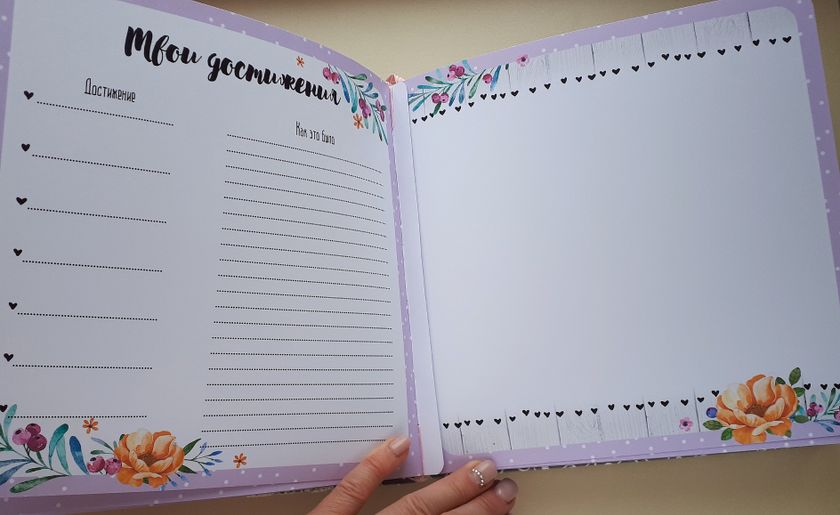 Твои достижения
Достижение
Как это было